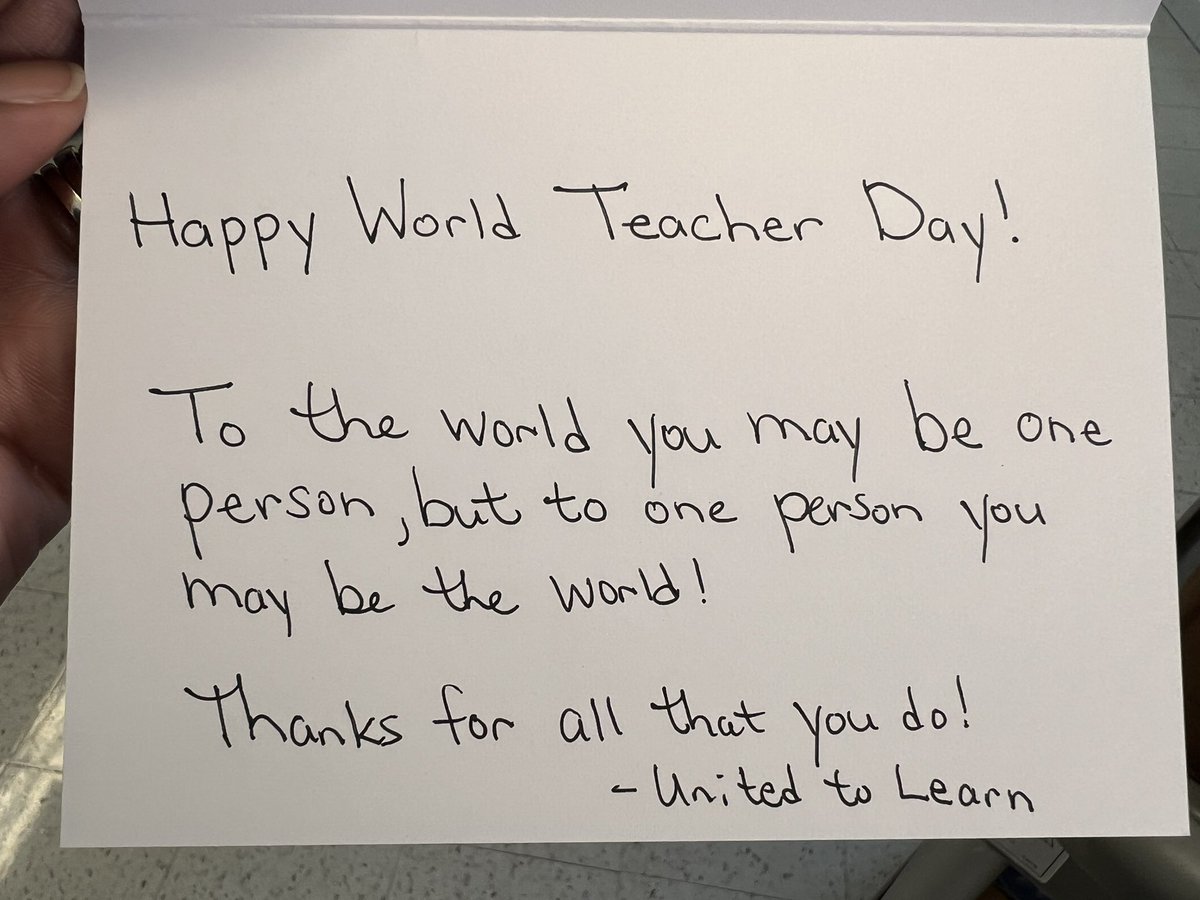 Happy World Teacher Day!
To the world you may be one
person, but to one person you
may be the world!
Thanks for all that you do!
- United to Learn